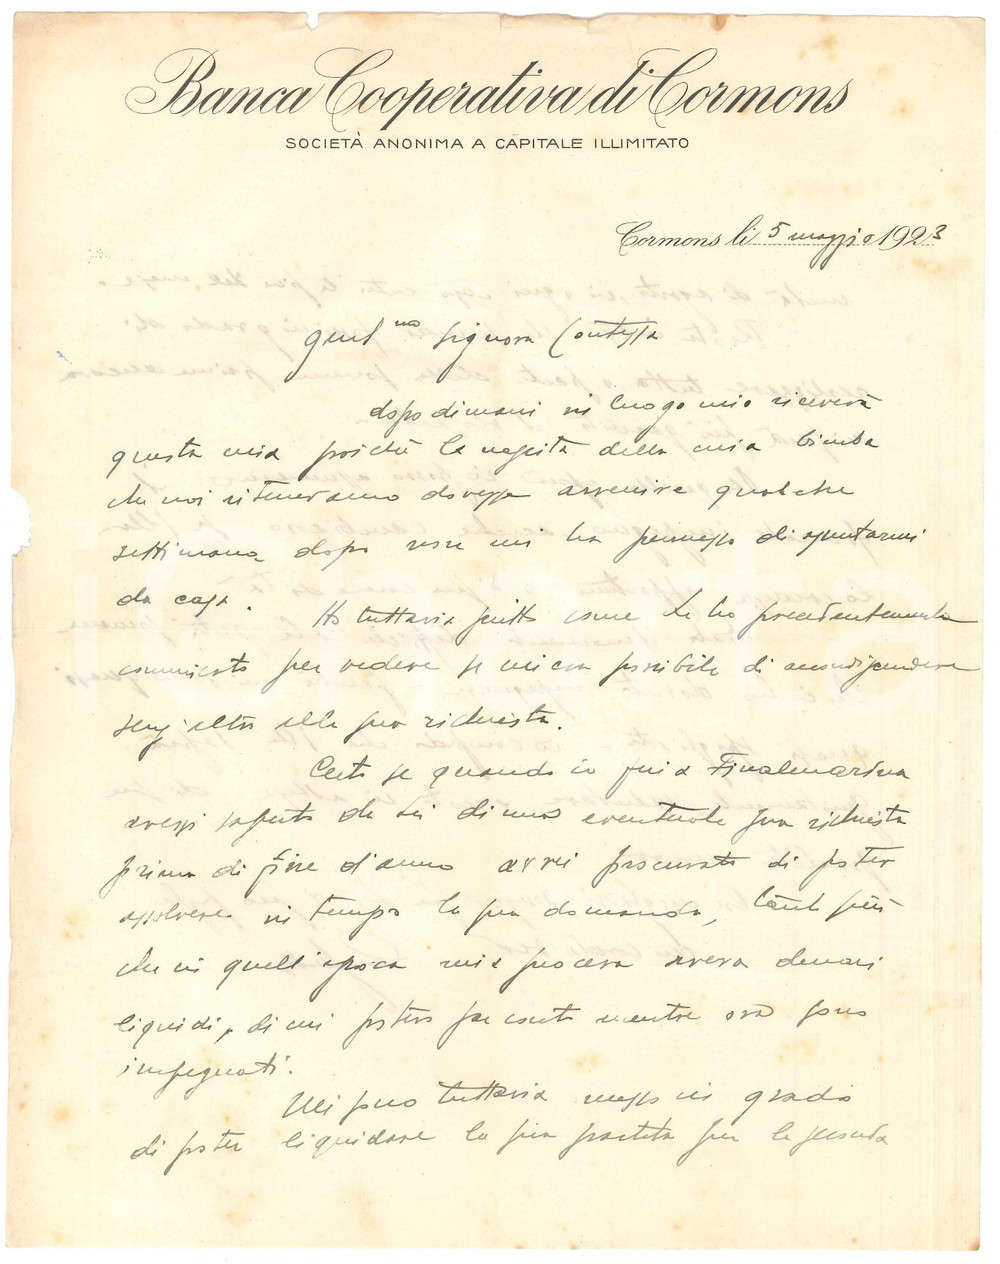 Banca Cooperativa di Cormons
SOCIETÀ ANONIMA A CAPITALE ILLIMITATO
Cormons li 5 maggio 1923
Gent.ma Signora Contessa
dopodimani in luogo mio riceverà
questa mia poiché la nascita della mia bimba
che noi ritenevamo dovesse avvenire qualche
settimana dopo non mi ha permesso di spostarmi
da casa.
Ho tuttavia scritto come Le ho precedentemente
comunicato per vedere se mi era possibile di accondiscendere
senz'altro alla sua richiesta.
Certo se quando io fui a Finalmarina
avessi saputo da Lei di una eventuale sua richiesta
prima di fine d'anno avrei procurato di poter
assolvere in tempo la sua domanda, tanto più
che in quell'epoca mia suocera aveva denari
liquidi, di cui potevo far conto mentre ora sono
impegnati.
Mi sono tuttavia messo in grado
di poter liquidare la sua partita per la seconda